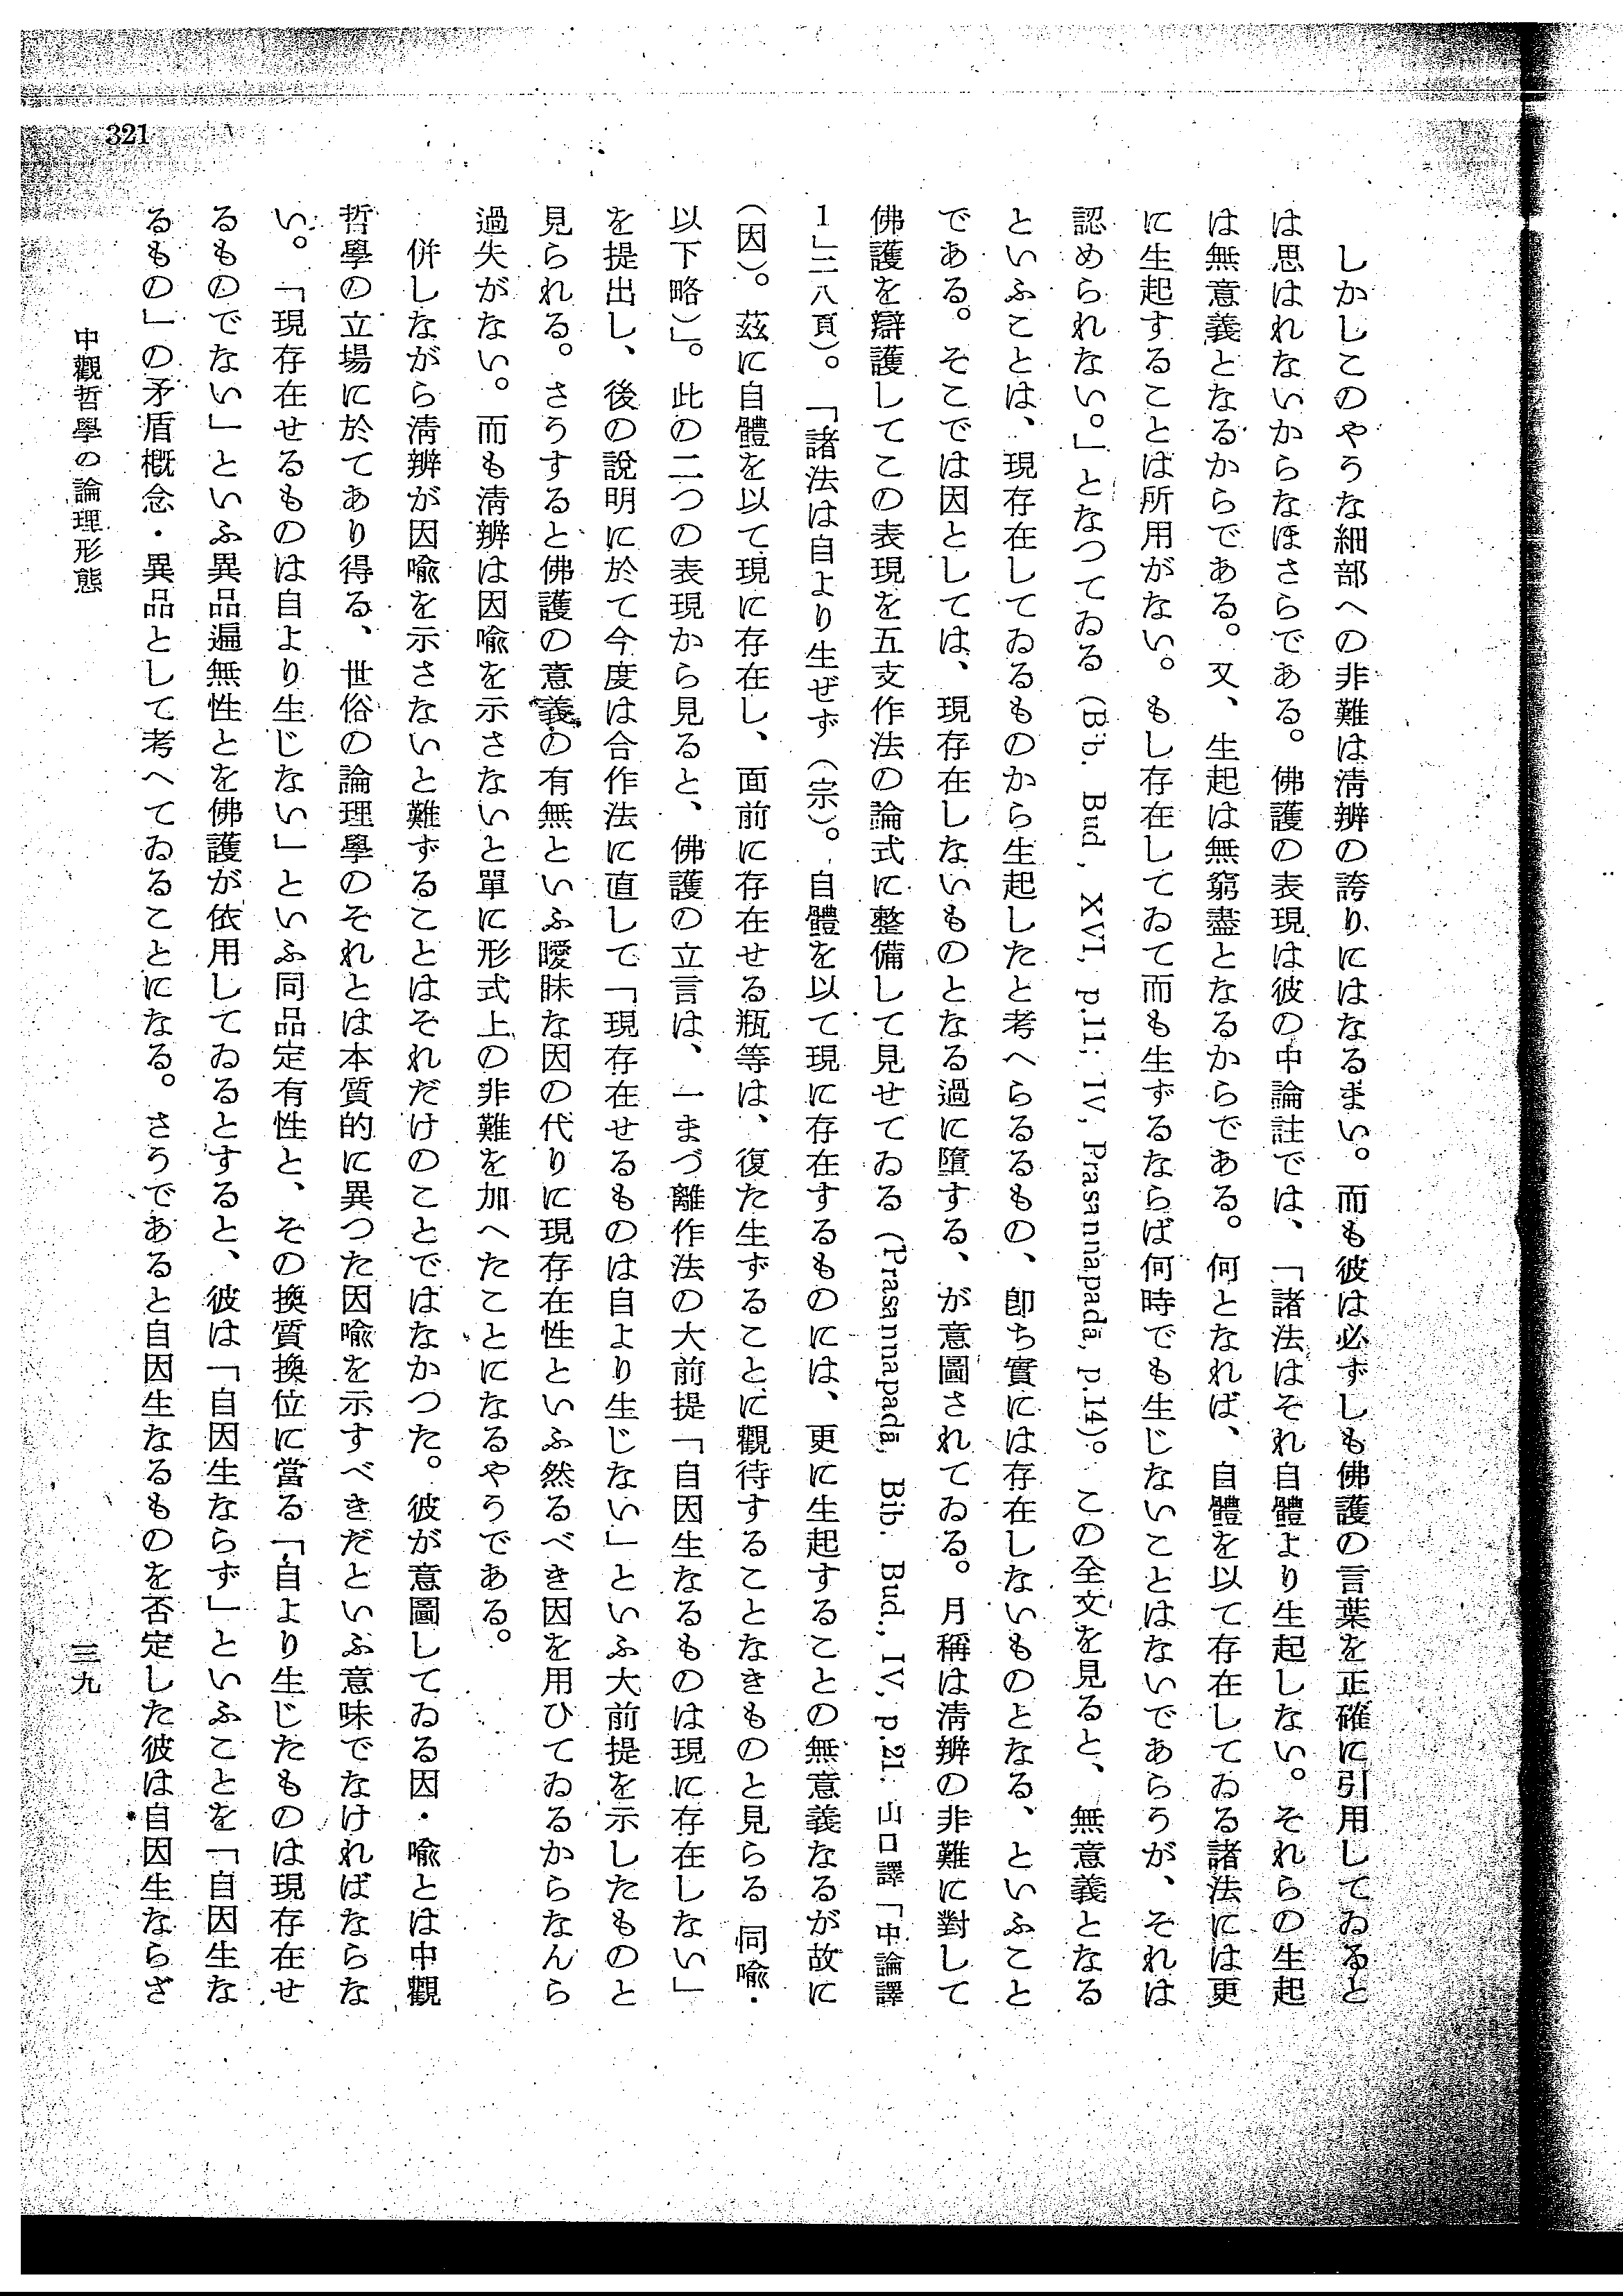 321
しかしこのやうな細部への非難は淸辨の誇りにはなるまい。而も彼は必ずしも佛護の言葉を正確に引用してゐると
は思はれないからなほさらである。佛護の表現は彼の中論註では、「諸法はそれ自體より生起しない。それらの生起
は無意義となるからである。又、生起は無窮盡となるからである。何となれば、自體を以て存在してゐる諸法には更
に生起することは所用がない。もし存在してゐて而も生ずるならば何時でも生じないことはないであらうが、それは
認められない。」となつてゐる (Bib. Bud, XVI, p.11; IV, Prasannapadā, p.14)。この全文を見ると、無意義となる
といふことは、現存在してゐるものから生起したと考へらるるもの、卽ち實には存在しないものとなる、といふこと
である。そこでは因としては、現存在しないものとなる過に墮する、が意圖されてゐる。月稱は淸辨の非難に對して
佛護を辯護してこの表現を五支作法の論式に整備して見せてゐる (Prasannapadā, Bib. Bud., IV, p.21. 山口譯「中論譯
1」二八頁)。「諸法は自より生ぜず（宗）。自體を以て現に存在するものには、更に生起することの無意義なるが故に
（因）。茲に自體を以て現に存在し、面前に存在せる瓶等は、復た生ずることに觀待することなきものと見らる 同喩・
以下略）」。此の二つの表現から見ると、佛護の立言は、一まづ離作法の大前提「自因生なるものは現に存在しない」
を提出し、後の說明に於て今度は合作法に直して「現存在せるものは自より生じない」といふ大前提を示したものと
見られる。さうすると佛護の意義の有無といふ曖昧な因の代りに現存在性といふ然るべき因を用ひてゐるからなんら
過失がない。而も淸辨は因喩を示さないと單に形式上の非難を加へたことになるやうである。
併しながら淸辨が因喩を示さないと難ずることはそれだけのことではなかつた。彼が意圖してゐる因・喩とは中觀
哲學の立場に於てあり得る、世俗の論理學のそれとは本質的に異つた因喩を示すべきだといふ意味でなければならな
い。「現存在せるものは自より生じない」といふ同品定有性と、その換質換位に當る「自より生じたものは現存在せ
るものでない」といふ異品遍無性とを佛護が依用してゐるとすると、彼は「自因生ならず」といふことを「自因生な
るもの」の矛盾概念・異品として考へてゐることになる。さうであると自因生なるものを否定した彼は自因生ならざ
中觀哲學の論理形態
三九